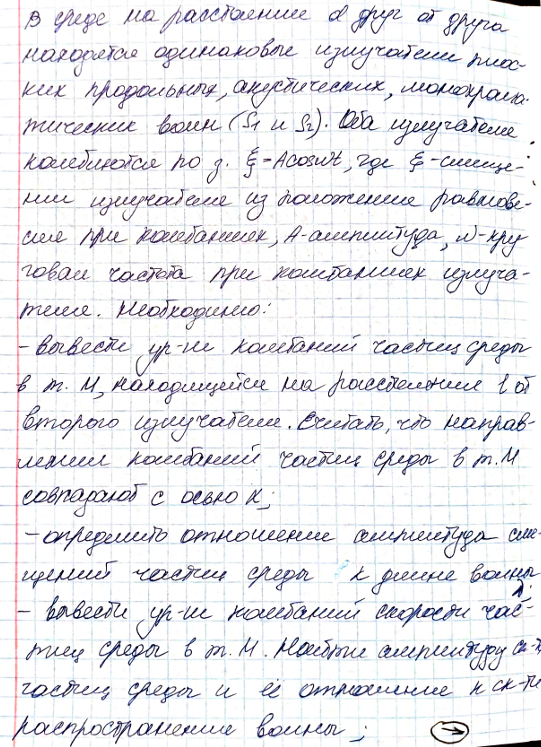 В среде на расстоянии d друг от друга
находятся одинаковые излучатели плос-
ких продольных, акустических, монохрома-
тических волн (S₁ и S₂). Оба излучателя
колеблются по з. ξ=Acosωt, где ξ-смеще-
нии излучателя из положения равнове-
сия при колебаниях, A-амплитуда, ω-кру
говая частота при колебаниях излуча-
теля. Необходимо:
- вывести ур-ия колебаний частиц среды
в т. М, находящейся на расстоянии l от
второго излучателя. Считать, что направ-
лении колебаний частиц среды в т.М
совпадают с осью X;
- определить отношение амплитуда сме-
щений частиц среды к длине волны λ;
- вывести ур-ия колебаний скорости час-
тиц среды в т. М. Найти амплитуду ск-ти
частиц среды и её отношение к ск-ти
распространения волны; →